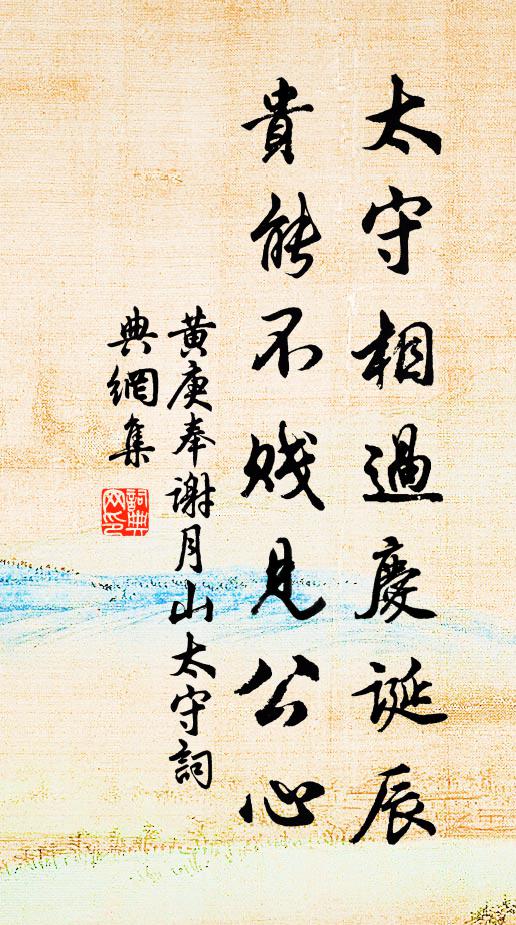 太守相過慶誕辰
貴能不賤見公心
黃庚奉謝月山太守詞
典網集
詞典
網印